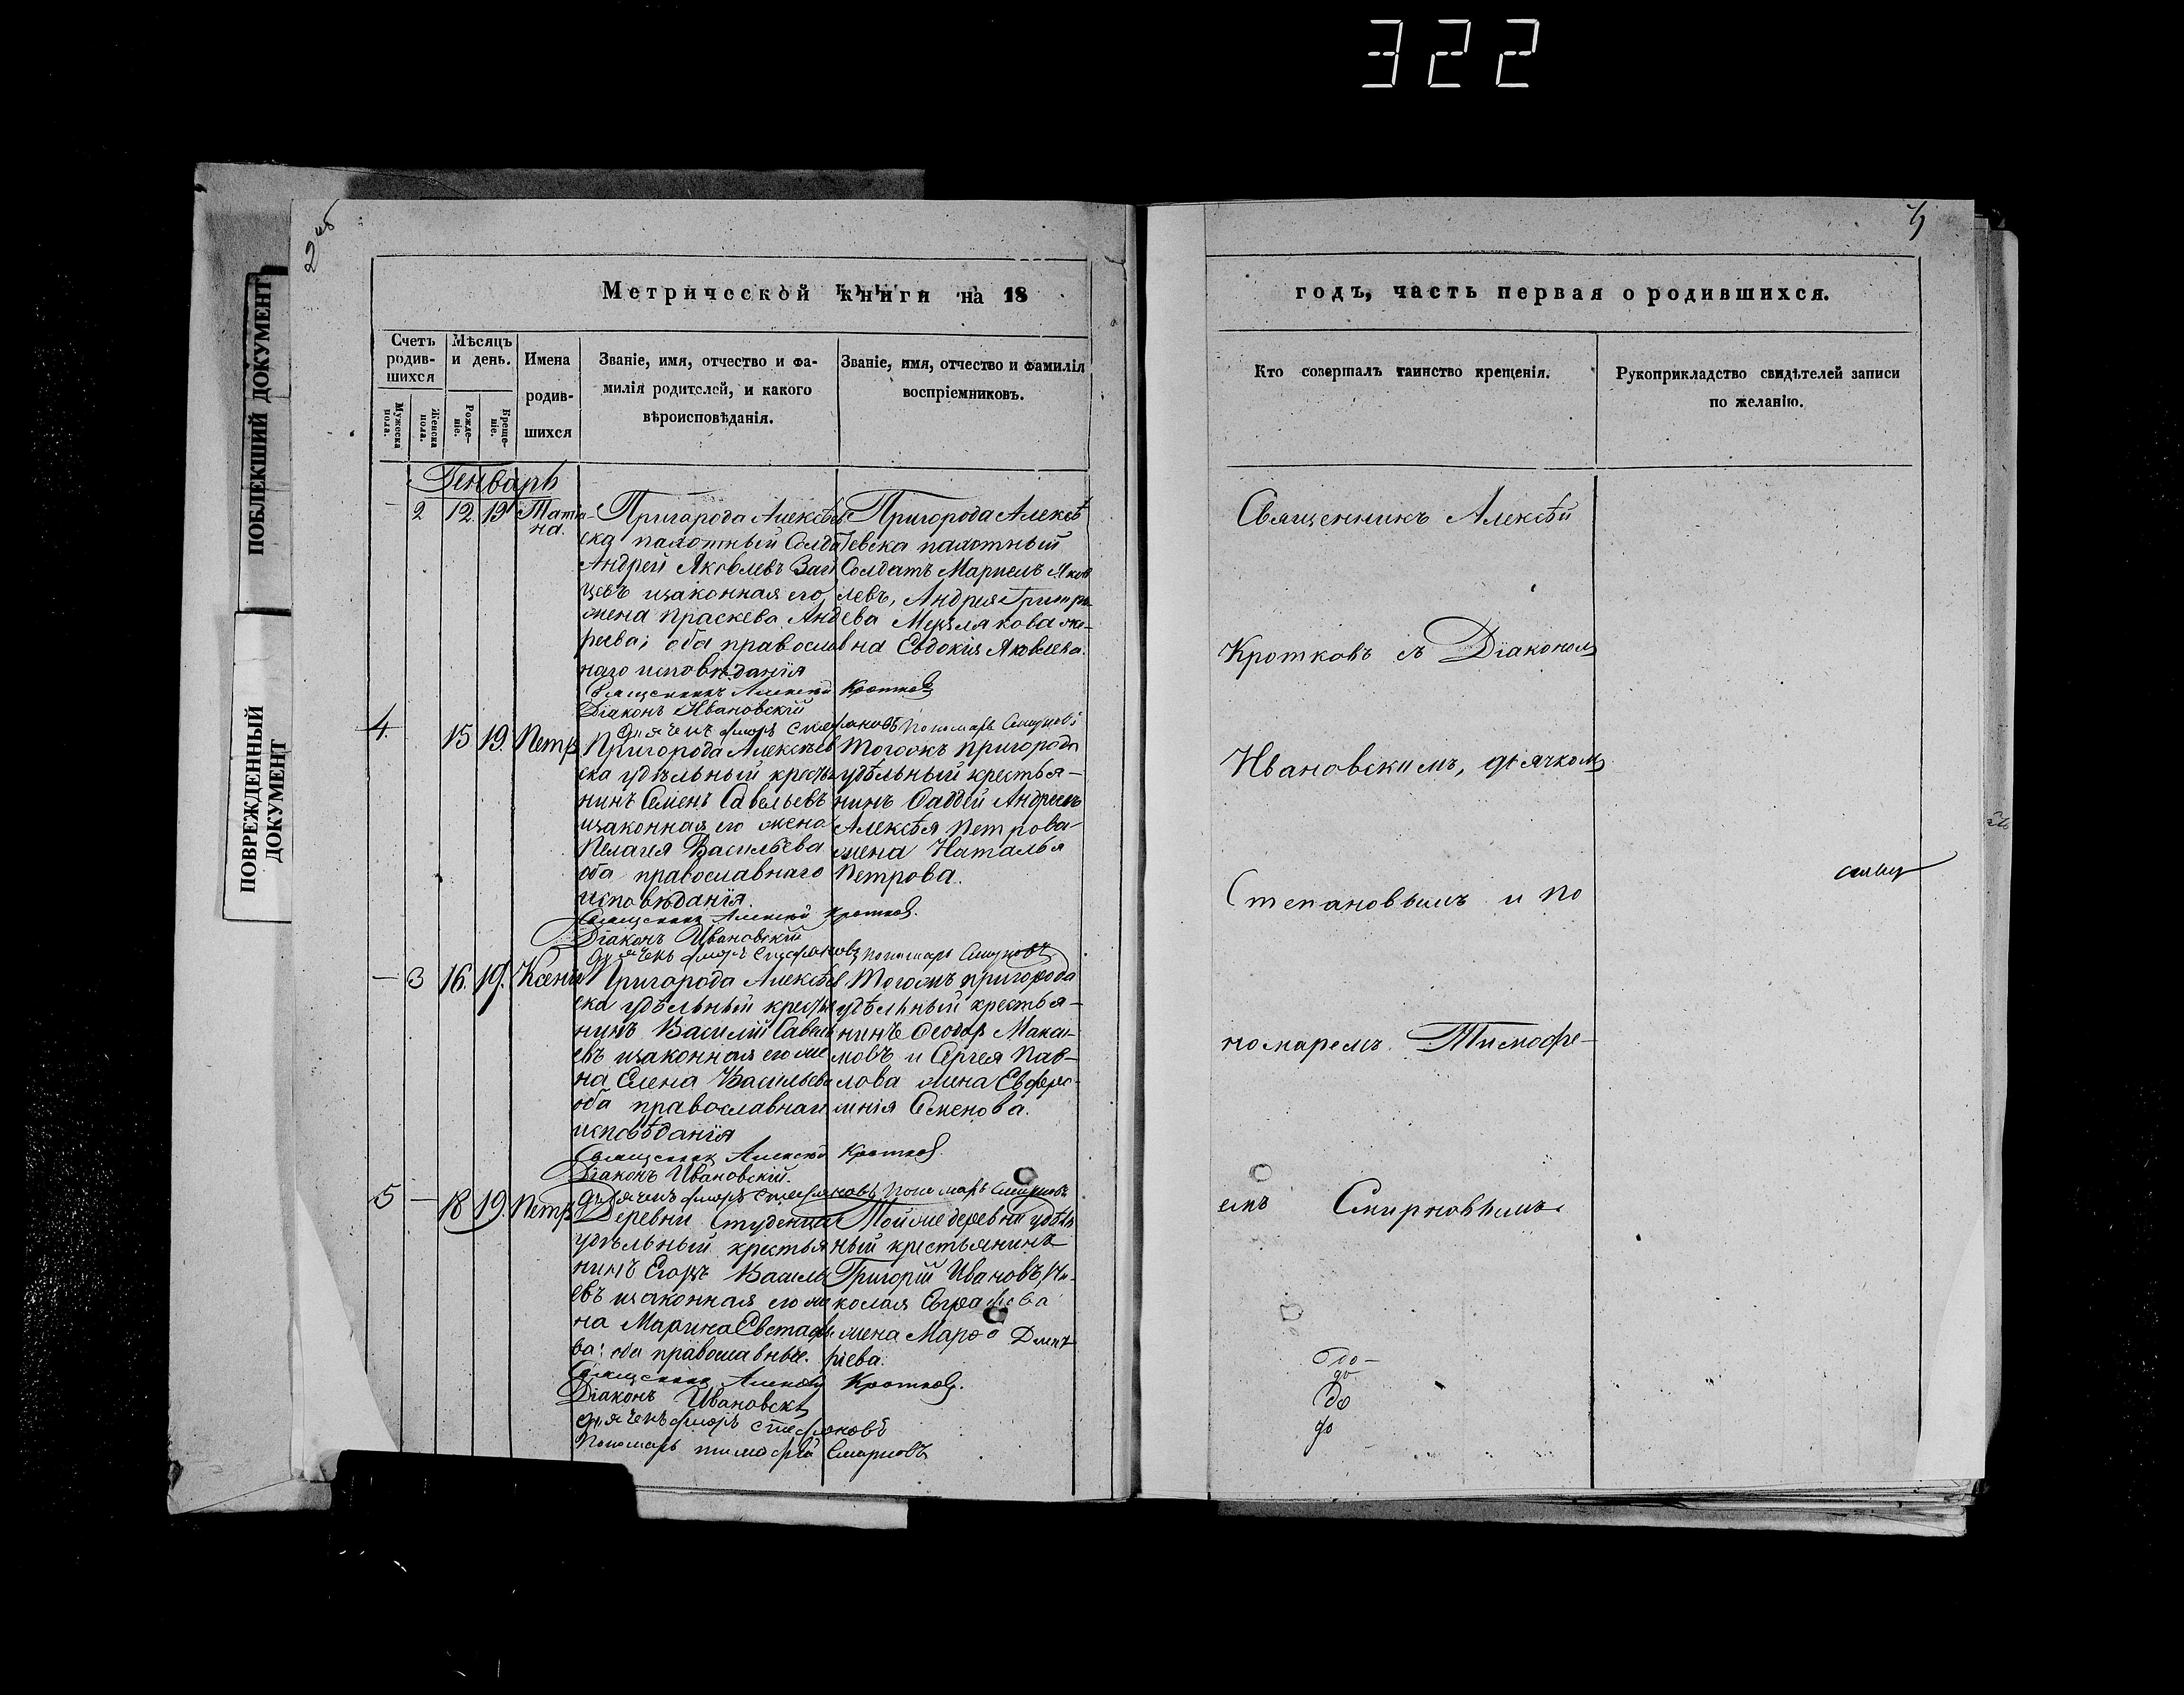 322
ПОБЛЕКШИЙ ДОКУМЕНТ
ПОВРЕЖДЕННЫЙ
ДОКУМЕНТ
Метрической книги на 18
Счетъ
родив-
шихся
Мѣсяцъ
и день.
Мужеска
пола.
Женска
пола.
Рожде-
ніе.
Креще-
ніе.
Имена
родив-
шихся
Званіе, имя, отчество и фа-
милія родителей, и какого
вѣроисповѣданія.
Званіе, имя, отчество и фамилія
воспріемниковъ.
Генварь
2 12 19 Татья-
на.
Пригарода Алексѣев
ска палотный Солда
Андрей Яковлевъ
изаконная его
жена Праскева Анд
реева; оба православ
наго исповѣданія
Пригорода Алексѣ
евска палотный
Солдатъ Яков
левъ, Андрея Григорь
ева Мерзлякова же-
на Евдокия Яковлева.
Священникъ Алексѣй Кротковъ
Діаконъ Ивановскій
Дьячекъ Стефановъ Пономарь Смирновъ
4. 15 19. Петръ
Пригорода Алексѣев
ска удѣльный крестья
нинъ Семенъ Савельевъ
изаконная его жена
Пелагея Васильева
оба православнаго
исповѣданія.
Тогожъ пригорода
удѣльный крестья-
нинъ Фаддей Андреевъ
Алексѣя Петрова
жена Наталья
Петрова.
Священникъ Алексѣй Кротковъ.
Діаконъ Ивановскій
Дьячекъ Стефановъ Пономарь Смирновъ
— 3 16. 19. Ксенія
Пригарода Алексѣев
ска удѣльный крестья
нинъ Василій Савель
евъ изаконная его же
на Елена Васильева
оба православнаго
исповѣданія
Тогожъ пригорода
удѣльный крестья-
нинъ Феодоръ Макси-
мовъ и Сергея Пав-
лова жена Евфро-
Семенова.
Священникъ Алексѣй Кротковъ.
Діаконъ Ивановскій.
Дьячекъ Стефановъ Пономарь Смирновъ
5 — 18 19. Петръ
Деревни Студенца
удѣльный крестья
нинъ Егоръ Василь
евъ изаконная его же
на Марина Евстафье
ва: оба православные.
Тойже деревни удѣль
ный крестьянинъ
Григорій Ивановъ, Ни-
колая
жена Дмит
ріева.
Священникъ Алексѣй Кротковъ.
Діаконъ Ивановскій
Дьячекъ Стефановъ
Пономарь Тимофѣй Смирновъ
годъ, часть первая о родившихся.
Кто совершалъ таинство крещенія.
Рукоприкладство свидѣтелей записи
по желанію.
Священникъ Алексѣй
Кротковъ съ Діакономъ
Ивановскимъ, дьячкомъ
Степановымъ и по
номаремъ Тимофе-
емъ Смирновымъ.